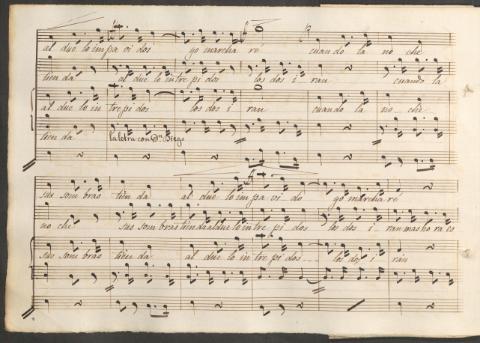 al due lo im pa vi dos yo marcha re cuando la no che
tien da al due lo in tre pi dos los dos i ran cuando la
al due lo in tre pi dos los dos i ran cuando la no che
tien da la letra con Dn. Diego
sus som bras tien da al due lo im pa vi do yo marcha re
no che sus som bras tienda al due lo in tre pi dos los dos i ran mas ho ra es
sus som bras tien da al due lo in tre pi dos los dos i ran